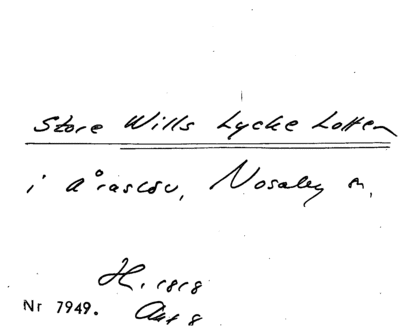 Store Wills Lycke Lotten
i Åraslöv, Nosaby sn,
H. 1818
Nr 7949. Akt 8